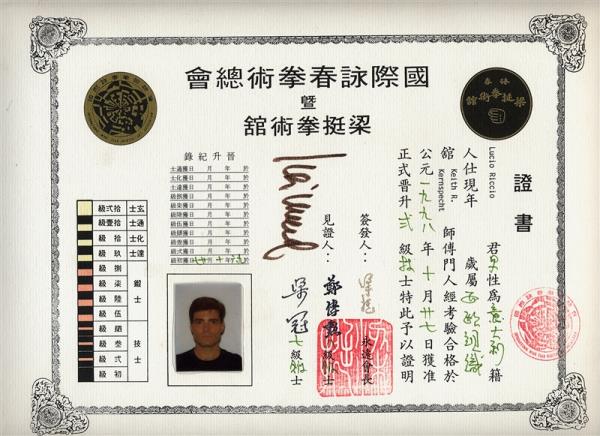 國際詠春拳術總會
暨
梁挺拳術舘
詠春
梁挺拳術舘
證書
Lucio Riccio 君男性爲意大利籍
人仕現年 歲屬西歐組織
舘 Keith R. Kernspecht 師傅門人經考驗合格於
公元一九九八年十月廿七日獲准
正式晉升弍級技士特此予以證明
簽發人：梁挺 永遠會長
見證人：鄭傳 級 士
梁冠 七級 士
晉升紀錄
於 年 月 日獲通士
於 年 月 日獲化士
於 年 月 日獲達士
於 年 月 日獲捌級
於 年 月 日獲柒級
於 年 月 日獲陸級
於 年 月 日獲伍級
於 年 月 日獲肆級
於 年 月 日獲叁級
於 年 月 日獲弍級
日獲初級
玄士 拾弍級
通士 拾壹級
化士 拾級
達士 玖級
鍛士
捌級
柒級
陸級
伍級
技士
肆級
叁級
弍級
初級